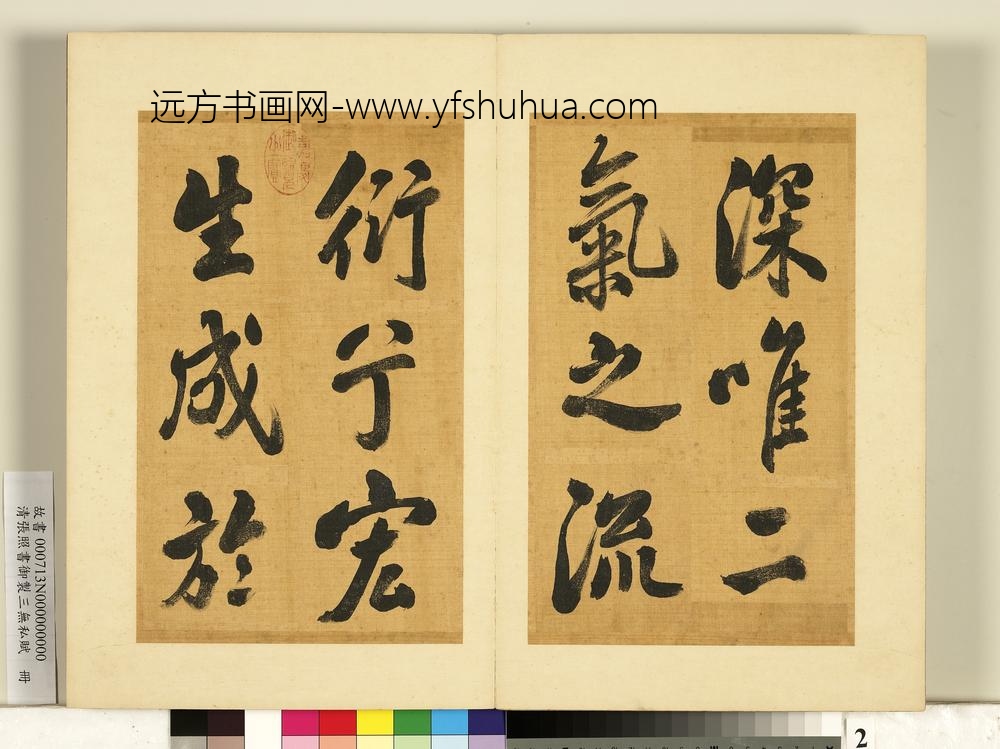 远方书画网-www.yfshuhua.com
深唯二
氣之流
衍亍宏
生成於
故書000713N000000000
清張照書御製三無私賦 冊
2